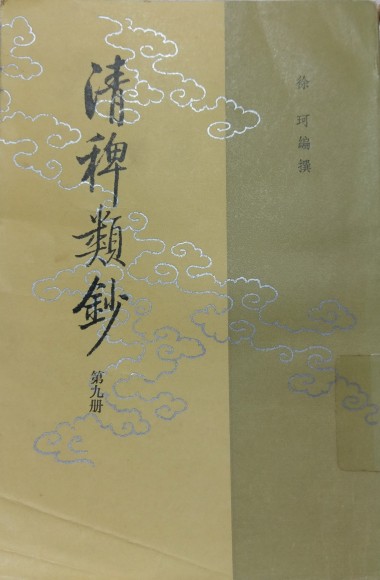 徐珂编撰
清稗類鈔
第九册